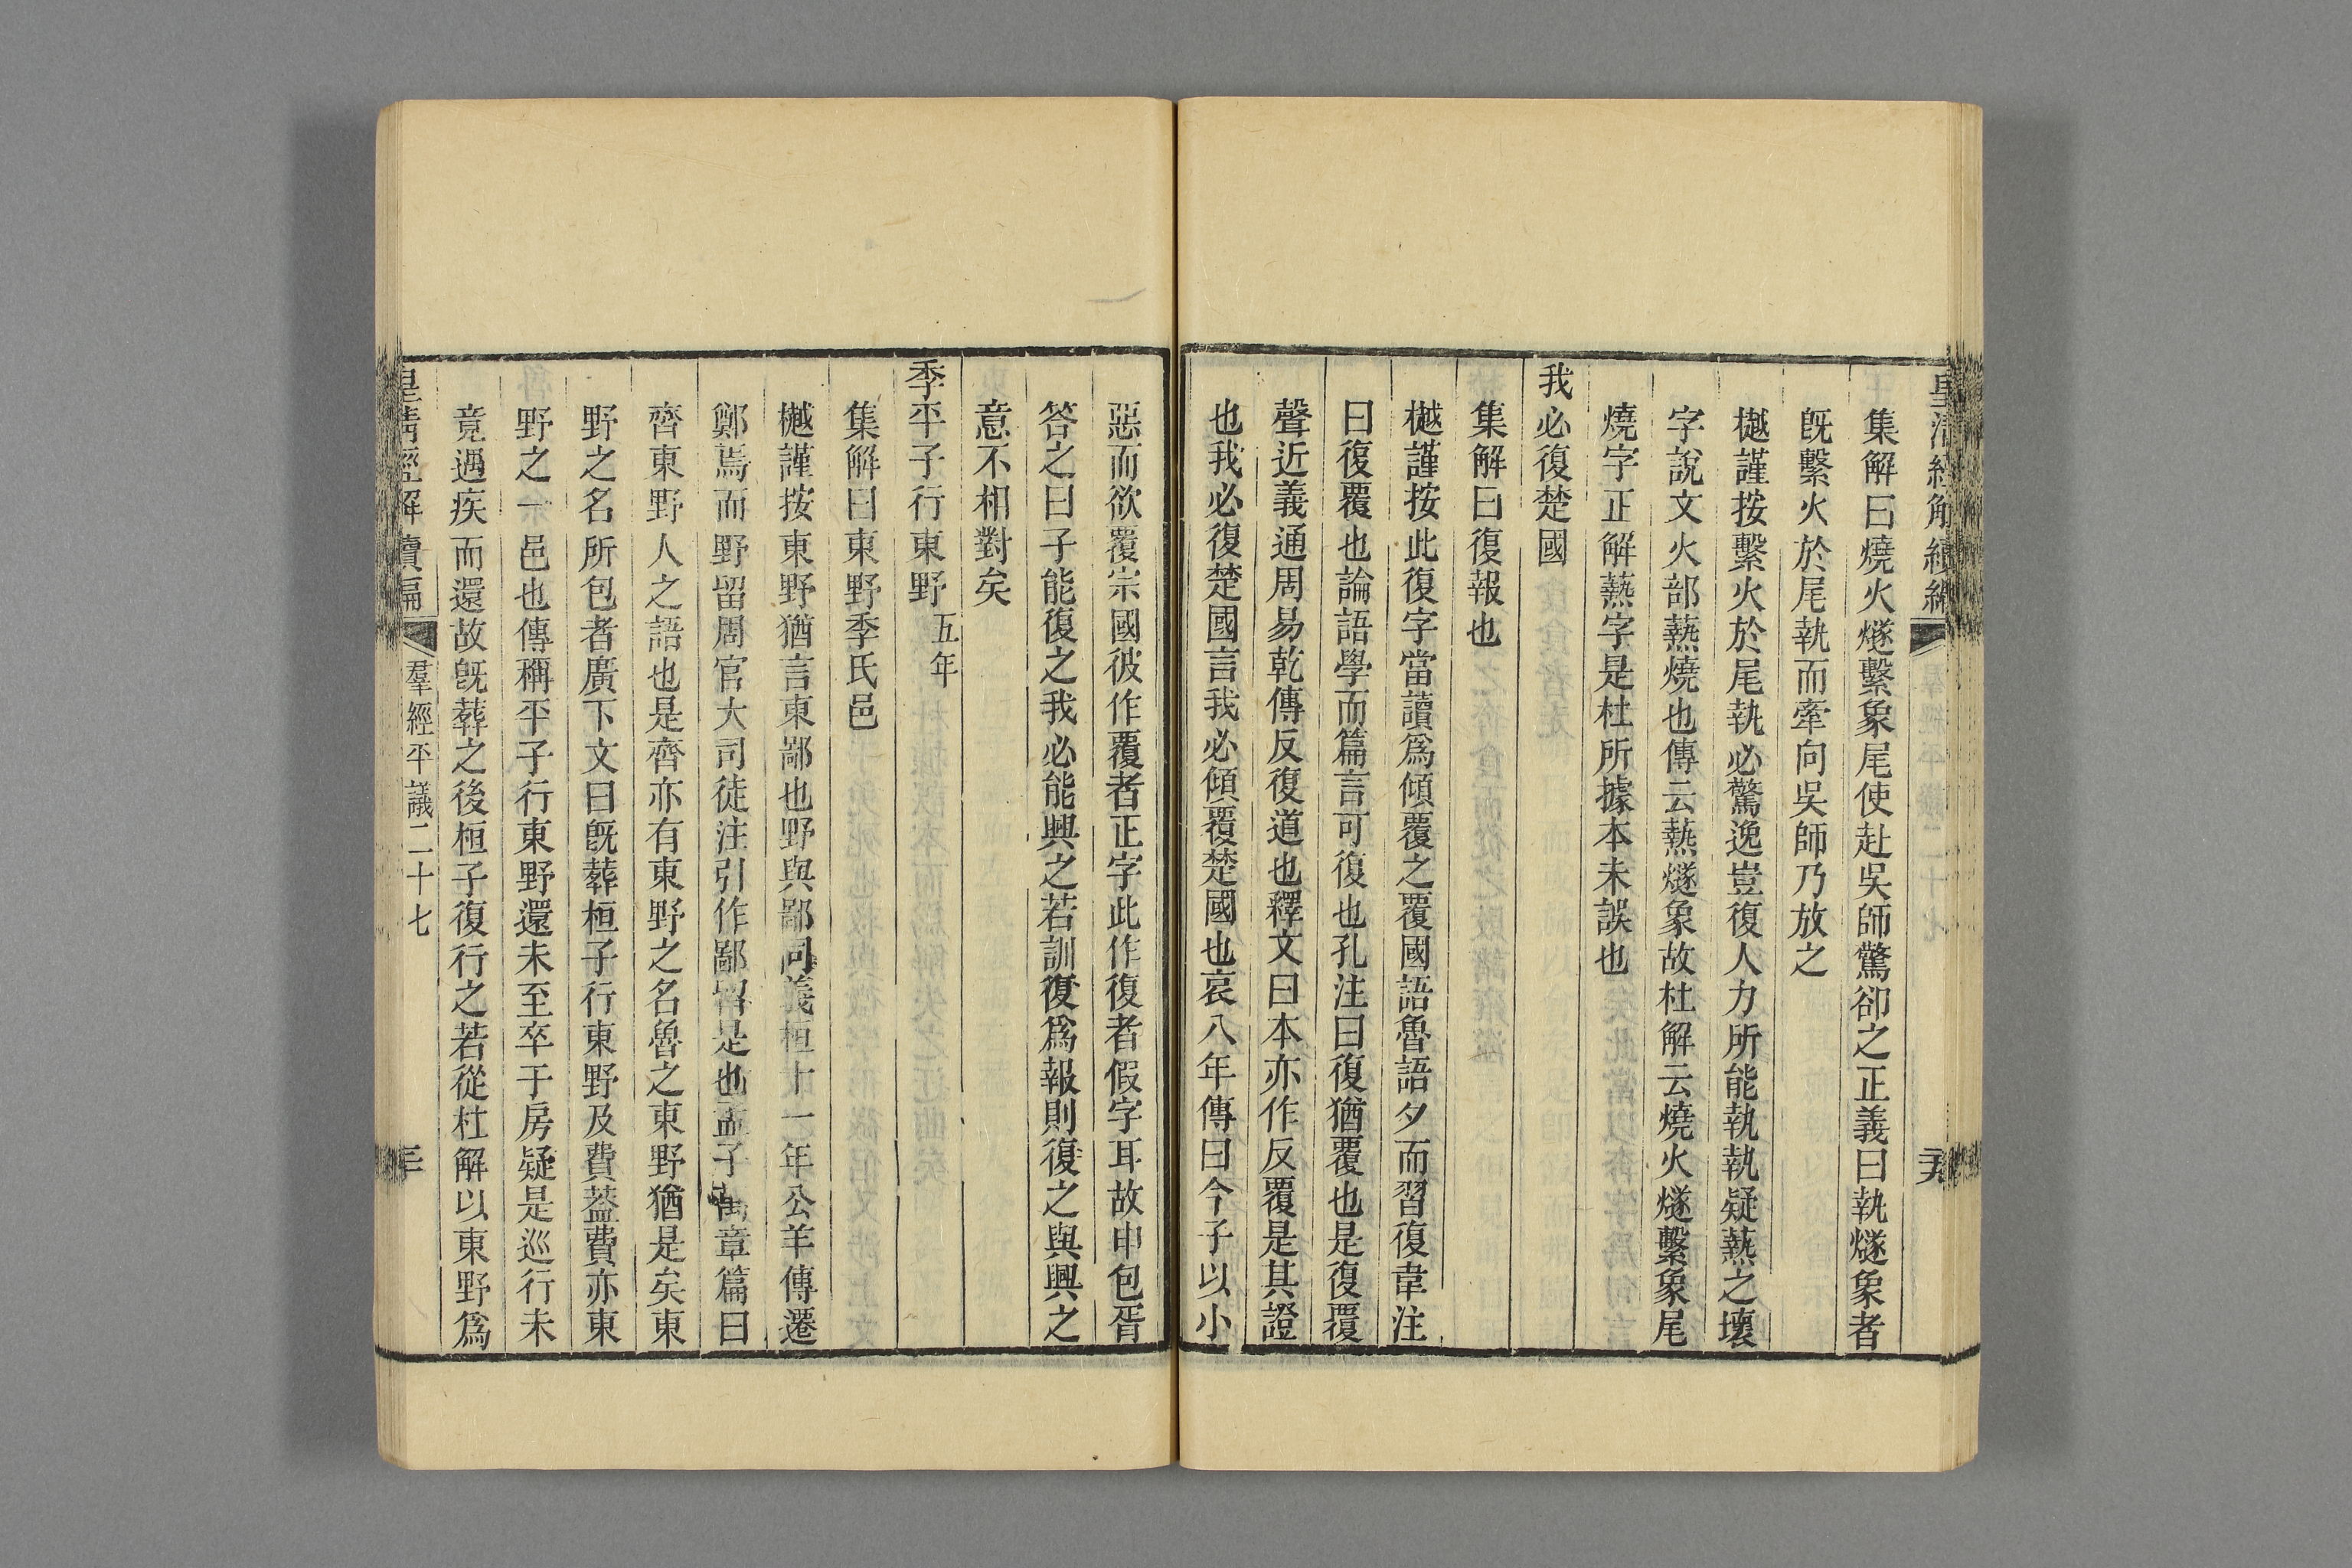 皇清經解續編
集解曰燒火燧繫象尾使赴吳師驚卻之正義曰執燧象者
旣繫火於尾執而牽向吳師乃放之
樾謹按繫火於尾執必驚逸豈復人力所能執執疑爇之壞
字說文火部爇燒也傳云爇燧象故杜解云燒火燧繫象尾
燒字正解爇字是杜所據本未誤也
我必復楚國
集解曰復報也
樾謹按此復字當讀爲傾覆之覆國語魯語夕而習復韋注
曰復覆也論語學而篇言可復也孔注曰復猶覆也是復覆
聲近義通周易乾傳反復道也釋文曰本亦作反覆是其證
也我必復楚國言我必傾覆楚國也哀八年傳曰今子以小
惡而欲覆宗國彼作覆者正字此作復者假字耳故申包胥
答之曰子能復之我必能興之若訓復爲報則復之與興之
意不相對矣
季平子行東野五年
集解曰東野季氏邑
樾謹按東野猶言東鄙也野與鄙同義桓十一年公羊傳遷
鄭焉而野留周官大司徒注引作鄙留是也孟子萬章篇曰
齊東野人之語也是齊亦有東野之名魯之東野猶是矣東
野之名所包者廣下文曰旣葬桓子行東野及費葢費亦東
野之一邑也傳稱平子行東野還未至卒于房疑是巡行未
竟遇疾而還故旣葬之後桓子復行之若從杜解以東野爲
皇清經解續編
羣經平議二十七